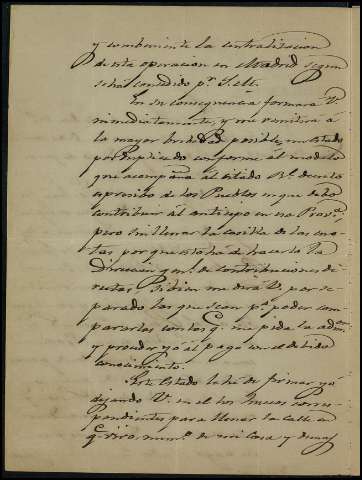 y combiniente la centralizacion
de esta operacion en Madrid segun
se ha concedido pr. S. Ete.
En su consequencia formará V.
inmediatamente, y me remitirá á
la mayor brebedad posible, un estado
por duplicado conforme al modelo
que acompaña al citado Rl. decreto
espresibo de los Pueblos en que debo
contribuir al anticipo en esa Prova.
pero sin llenar la casilla de las cuo-
tas porque esto ha de hacerlo la
Direccion gral. de contribuciones di-
rectas. Si bien me dirá V. por se-
parado las que sean pa. poder com-
pararlas con las q. me pida la admon.
y proceder yo al pago con el debido
conocimiento.
Este Estado le he de firmar yo
dejando V. en el los huecos corres-
pondientes para llenar la Calle en
q. vivo, numo. de mi casa y demas